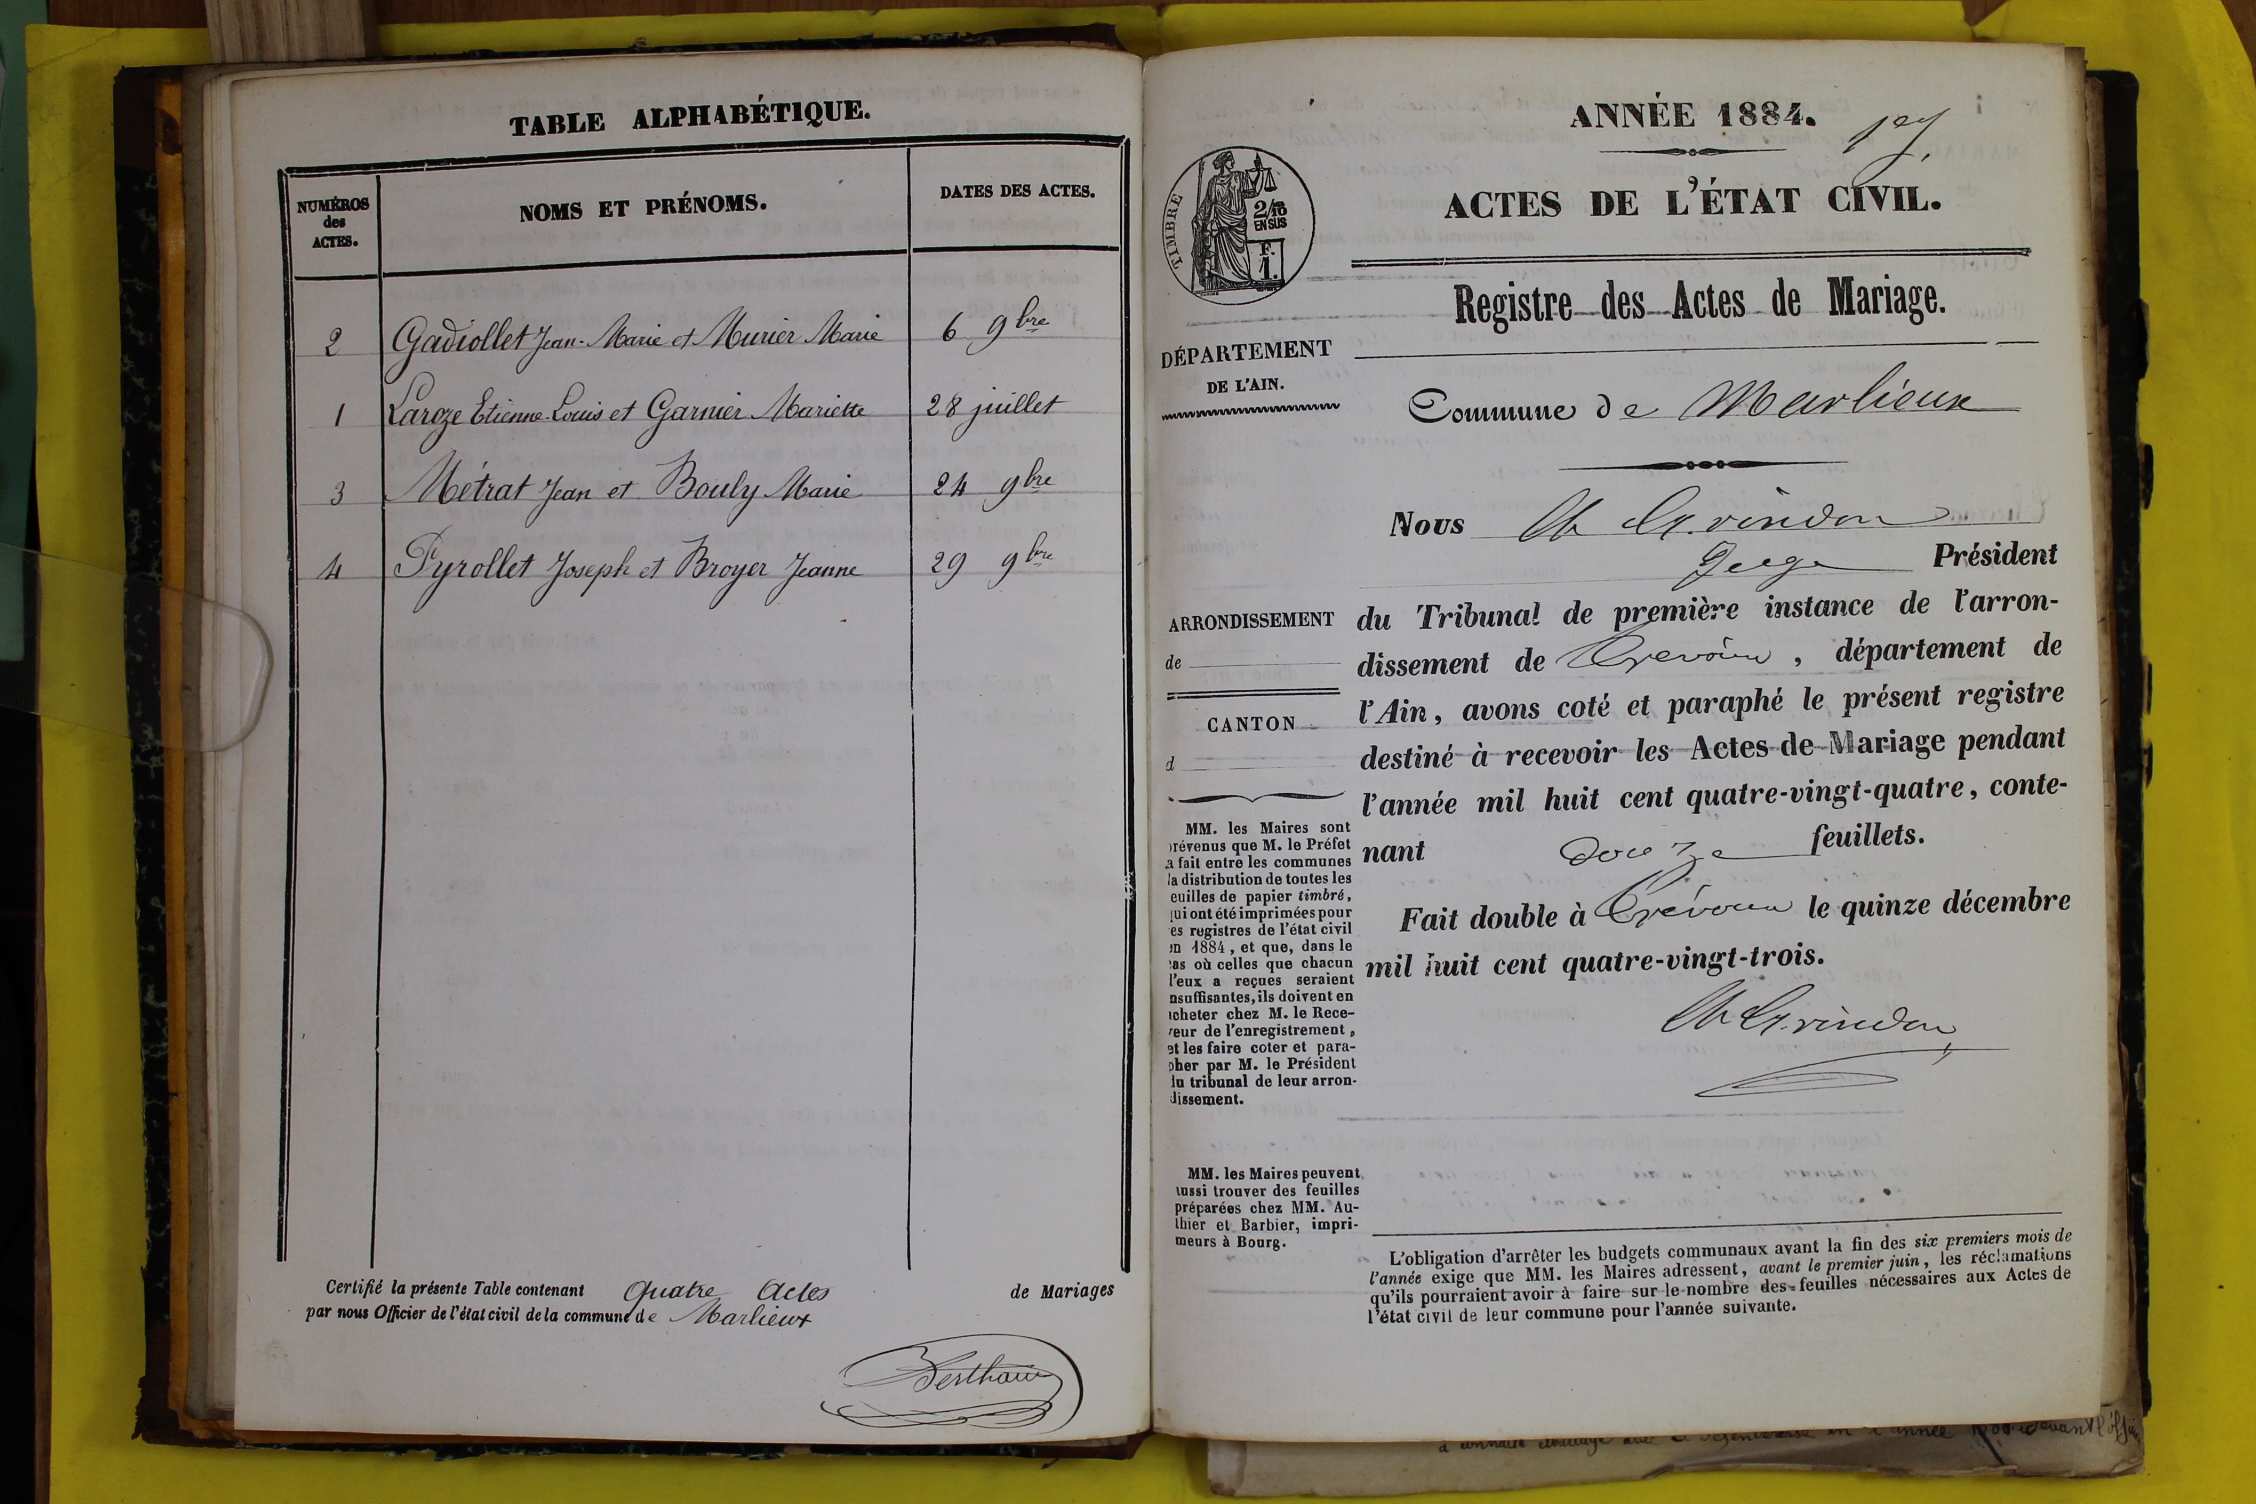 TABLE ALPHABÉTIQUE.
NUMÉROS des ACTES.
NOMS ET PRÉNOMS.
DATES DES ACTES.
2 Gadiollet Jean-Marie et Murier Marie 6 9bre
1 Laroze Etienne-Louis et Garnier Mariette 28 juillet
3 Métrat Jean et Bouly Marie 24 9bre
4 Pyrollet Joseph et Broyer Jeanne 29 9bre
Certifié la présente Table contenant Quatre Actes de Mariages
par nous Officier de l'état civil de la commune de Marlieux
ANNÉE 1884.
ACTES DE L'ÉTAT CIVIL.
TIMBRE
2/10
EN SUS
F.
1.
Registre des Actes de Mariage.
DÉPARTEMENT
DE L'AIN.
Commune de Marlieux
Nous Ch Grindon
Juge Président
ARRONDISSEMENT
de
CANTON
d
du Tribunal de première instance de l'arron-
dissement de Trévoux, département de
l'Ain, avons coté et paraphé le présent registre
destiné à recevoir les Actes de Mariage pendant
l'année mil huit cent quatre-vingt-quatre, conte-
nant douze feuillets.
Fait double à Trévoux le quinze décembre
mil huit cent quatre-vingt-trois.
Ch Grindon
MM. les Maires sont
prévenus que M. le Préfet
a fait entre les communes
la distribution de toutes les
feuilles de papier timbré,
qui ont été imprimées pour
les registres de l'état civil
en 1884, et que, dans le
cas où celles que chacun
d'eux a reçues seraient
insuffisantes, ils doivent en
acheter chez M. le Rece-
veur de l'enregistrement,
et les faire coter et para-
pher par M. le Président
du tribunal de leur arron-
dissement.
MM. les Maires peuvent
aussi trouver des feuilles
préparées chez MM. Au-
thier et Barbier, impri-
meurs à Bourg.
L'obligation d'arrêter les budgets communaux avant la fin des six premiers mois de
l'année exige que MM. les Maires adressent, avant le premier juin, les réclamations
qu'ils pourraient avoir à faire sur le nombre des feuilles nécessaires aux Actes de
l'état civil de leur commune pour l'année suivante.